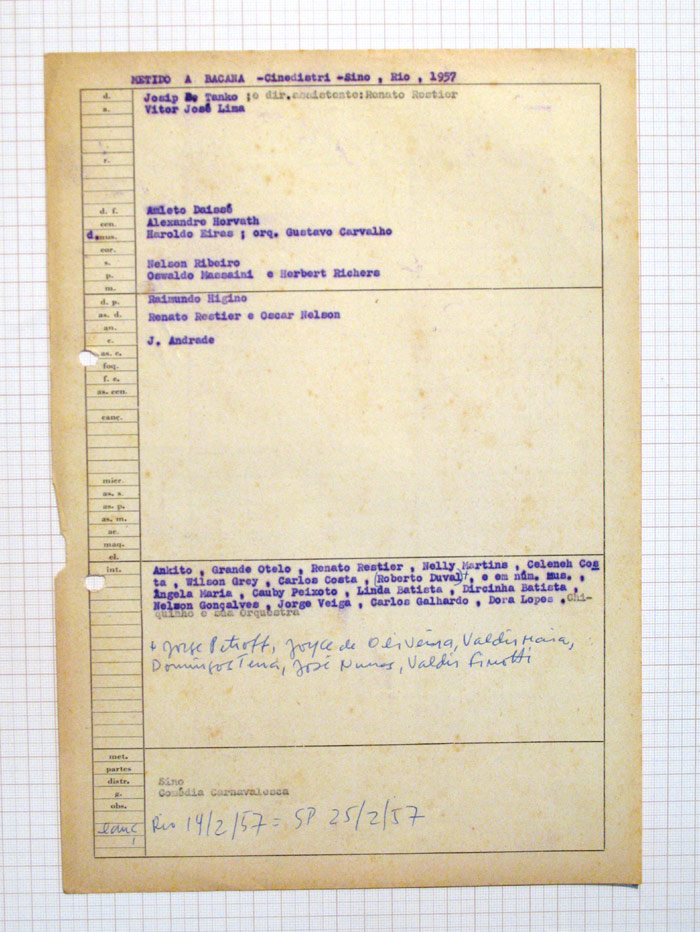 METIDO A BACANA -Cinedistri -Sino , Rio , 1957
d. Josip B. Tanko ; e dir.assistente: Renato Restier
a. Vitor José Lima
r.
d. f. Amleto Daissé
cen. Alexandre Horvath
d. mus. Haroldo Eiras ; orq. Gustavo Carvalho
cor.
s. Nelson Ribeiro
p. Oswaldo Massaini e Herbert Richers
m.
d. p. Raimundo Higino
as. d. Renato Restier e Oscar Nelson
an.
c. J. Andrade
as. c.
foq.
f. c.
as. cen.
canç.
micr.
as. s.
as. p.
as. m.
ae.
maq.
el.
int. Ankito , Grande Otelo , Renato Restier , Nelly Martins , Celeneh Cos
ta , Wilson Grey , Carlos Costa , (Roberto Duval) , e em núm. mus. ,
Ângela Maria , Cauby Peixoto , Linda Batista , Dircinha Batista ,
Nelson Gonçalves , Jorge Veiga , Carlos Galhardo , Dora Lopes , Chi-
quinho e sua Orquestra
+ Jorge Petroff, Joyce de Oliveira, Valdir Maia,
Domingos Terra, José Nunes, Valdir Finotti
met.
partes
distr. Sino
g. Comédia Carnavalesca
obs.
lanç Rio 14/2/57 = SP 25/2/57